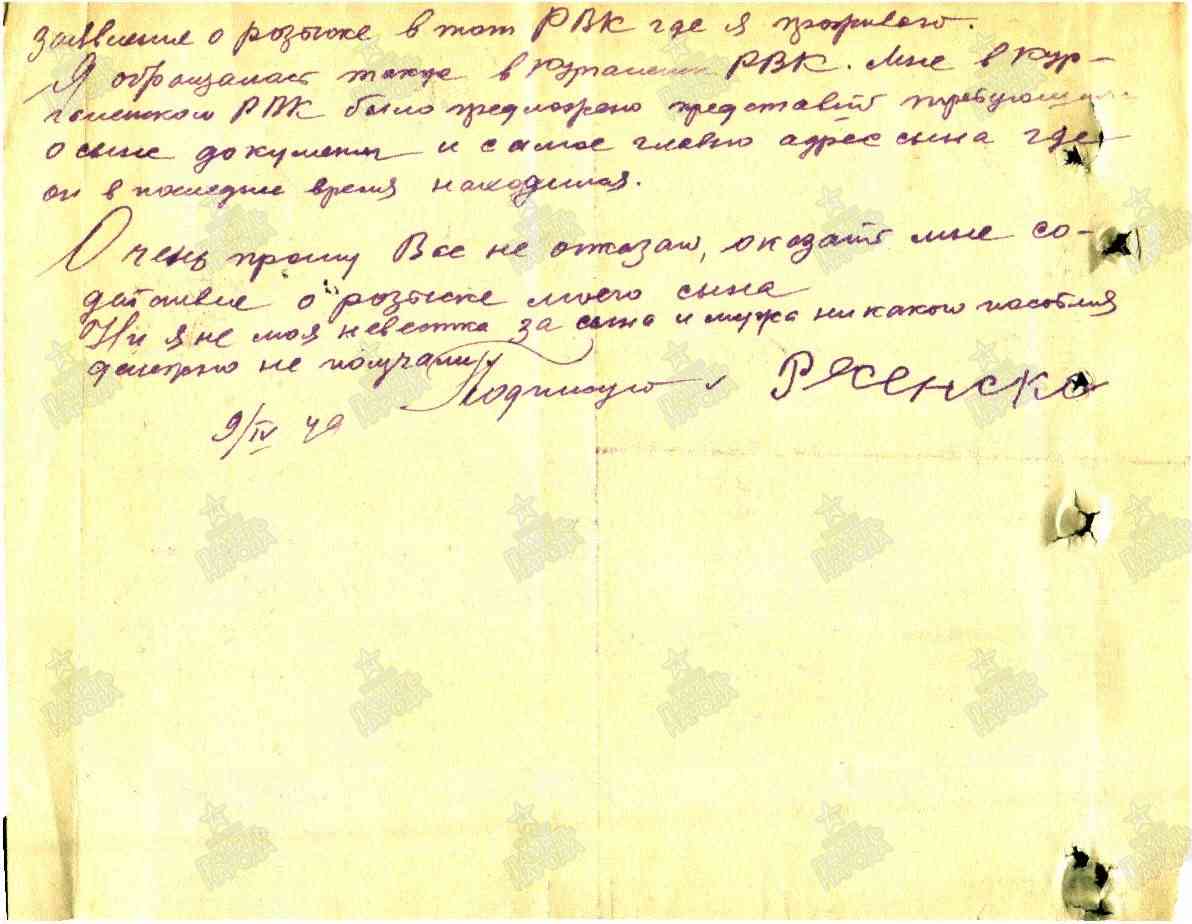 заявление о розыске в тот РВК где я проживаю.
Я обращалась также в Курганенск РВК. Мне в Кур-
ганенском РВК было предложено представить требующи
о сыне документы и самое главно адрес сына где
он в последнее время находился.
Очень прошу Вас не отказат, оказать мне со-
действие о розыске моего сына
Ни я не моя невестка за сына и мужа ни какого пособия
денежно не получали
Подписуюсь Рясенско
9/IV 49